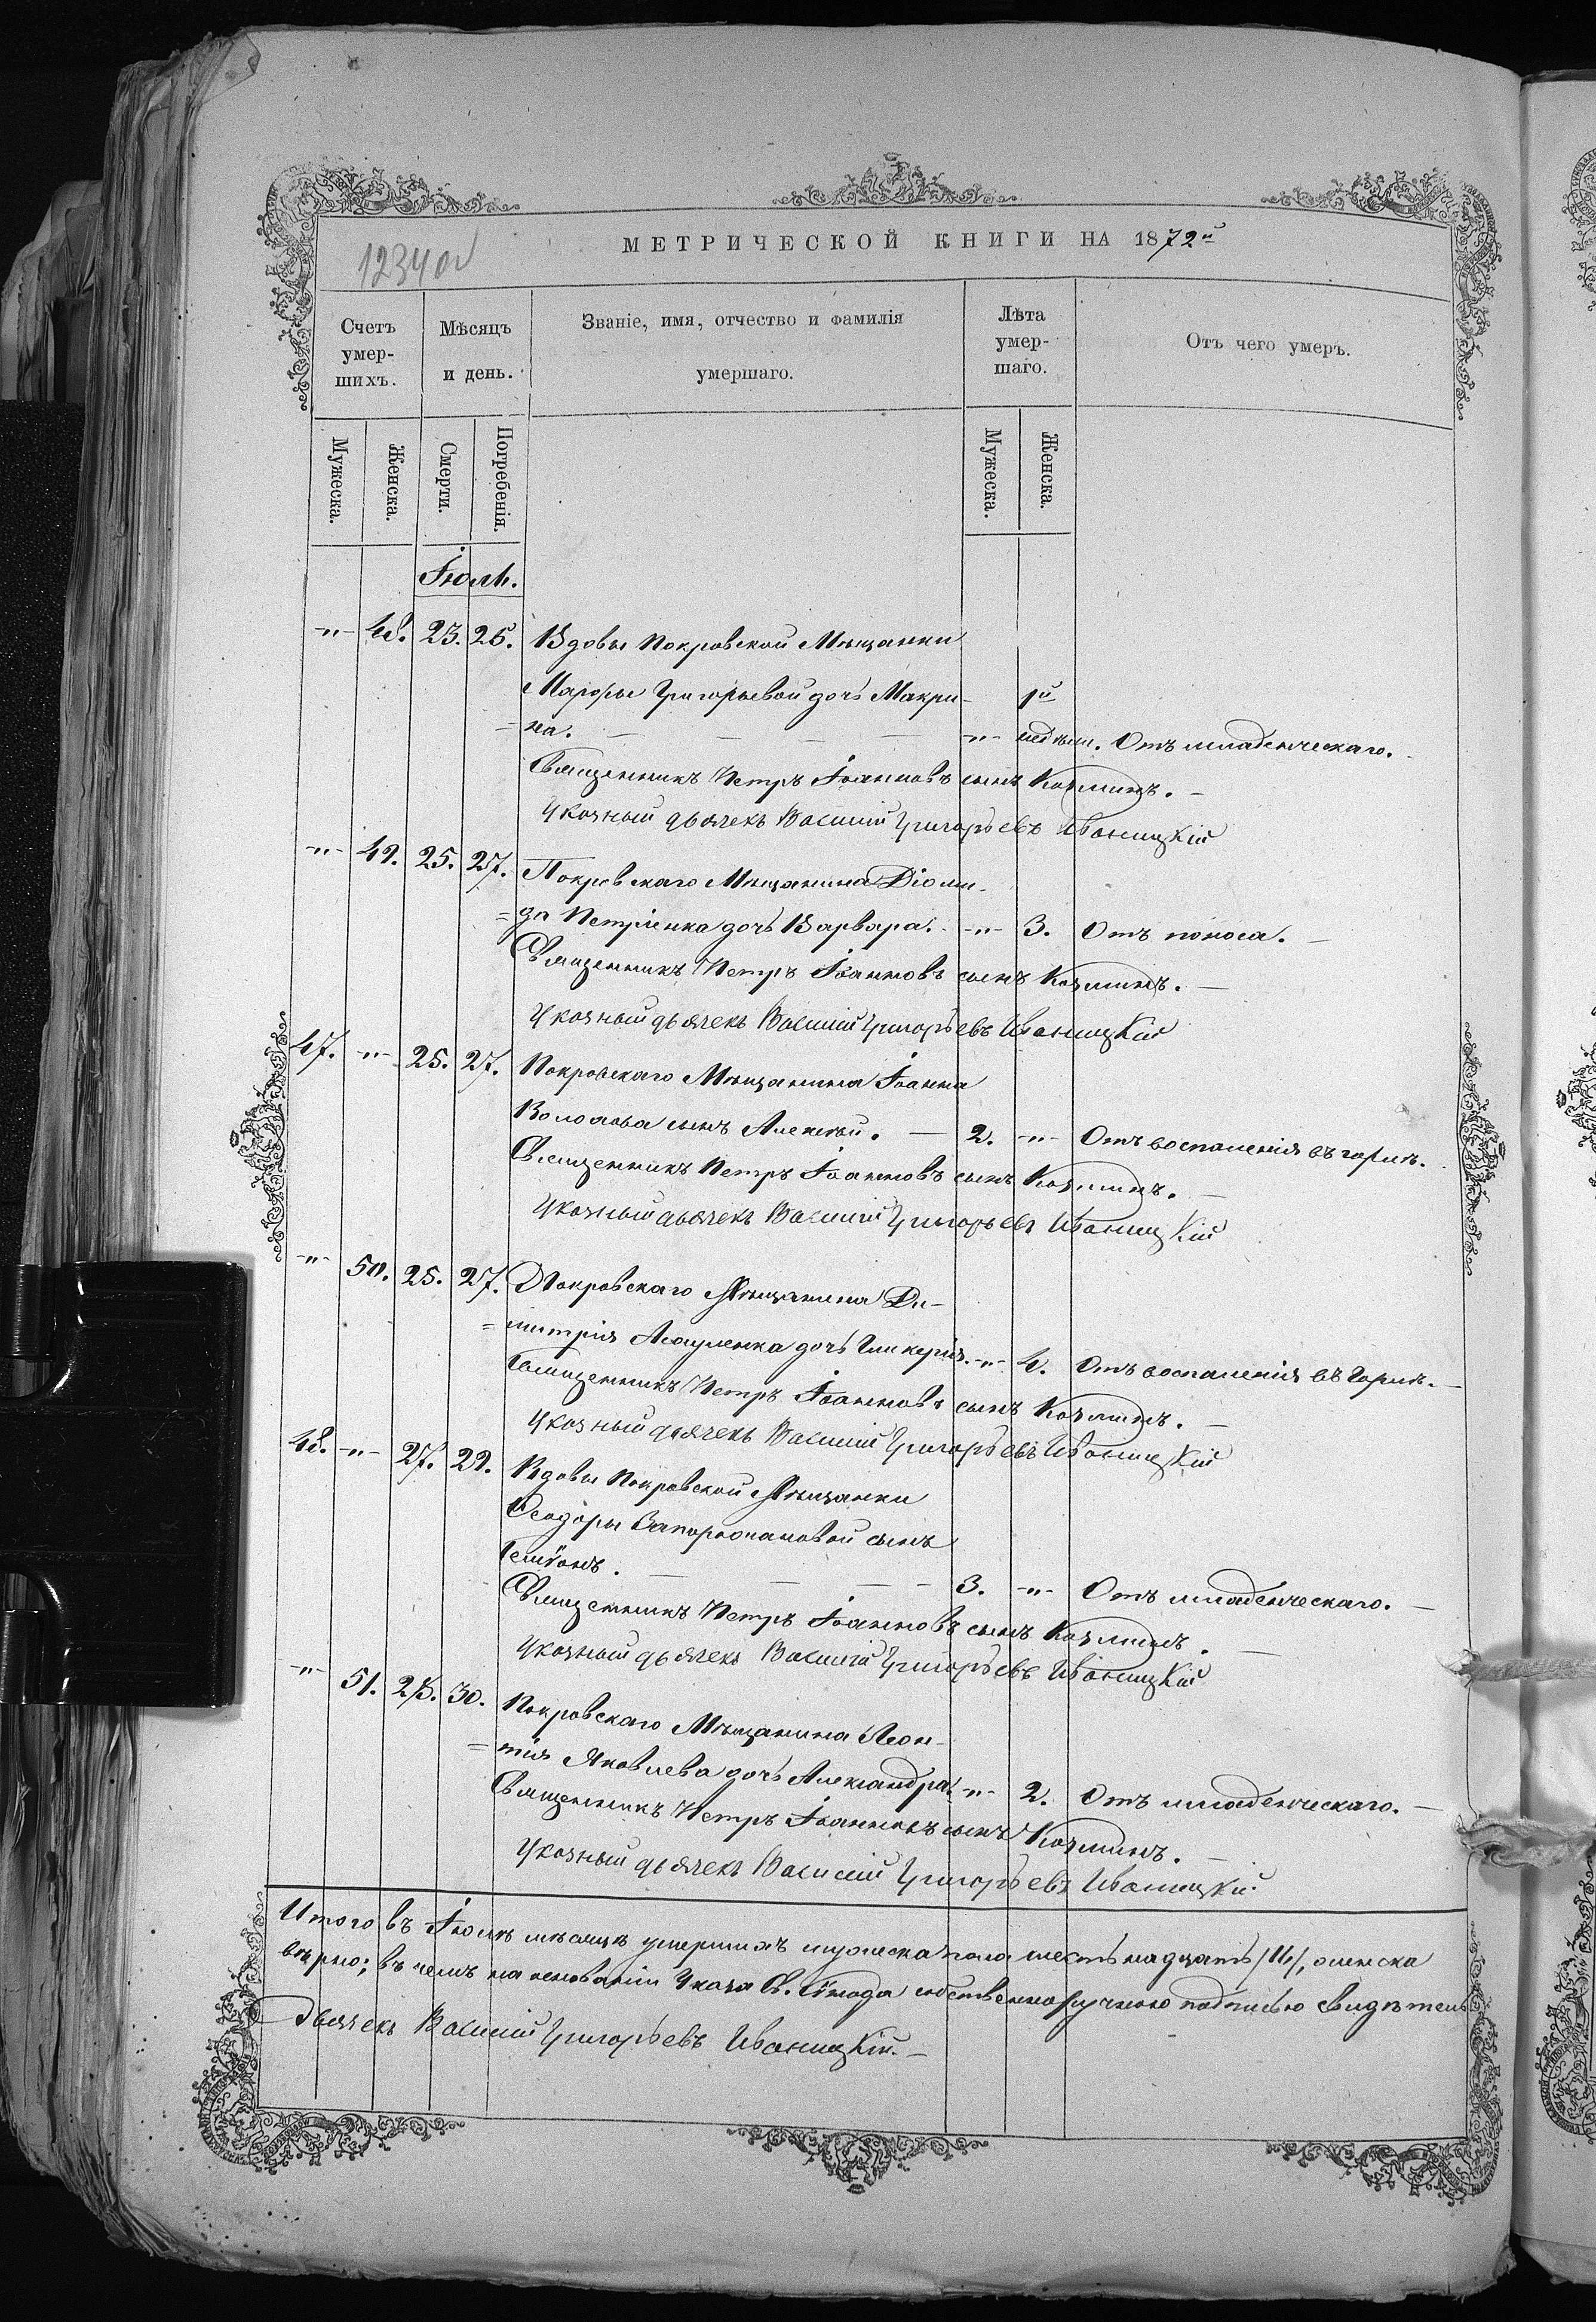 1234 об
МЕТРИЧЕСКОЙ КНИГИ НА 1872й
Счетъ умер- шихъ.
Мѣсяцъ и день.
Званіе, имя, отчество и фамилія умершаго.
Лѣта умер- шаго.
Отъ чего умеръ.
Мужеска. Женска. Смерти. Погребенія. Мужеска. Женска.
Іюль.
-"- 48. 23. 26. Вдовы Покровской Мѣщанки
Марѳы Григорьевой дочь Макри- 1й
=на. — — — — -"- недѣли. Отъ младенческаго.
Священникъ Петръ Іоанновъ сынъ Козминъ. —
Указный дьячекъ Василій Григорьевъ Иваницкій
-"- 49. 25. 27. Покровскаго Мѣщанина Діоми-
=да Петріенка дочь Варвара. -"- 3. Отъ поноса. —
Священникъ Петръ Іоанновъ сынъ Козминъ. —
Указный дьячекъ Василій Григорьевъ Иваницкій
47. -"- 25. 27. Покровскаго Мѣщанина Іоанна
сынъ Алексѣй. — 2. -"- Отъ воспаленія въ горлѣ.
Священникъ Петръ Іоанновъ сынъ Козминъ. —
Указный дьячекъ Василій Григорьевъ Иваницкій
-"- 50. 25. 27. Покровскаго Мѣщанина Ди-
=митрія Асауленка дочь Гликерія. -"- 4. Отъ воспаленія въ горлѣ. —
Священникъ Петръ Іоанновъ сынъ Козминъ. —
Указный дьячекъ Василій Григорьевъ Иваницкій
48. -"- 27. 29. Вдовы Покровской Мѣщанки
Ѳеодоры сынъ
— — — 3. -"- Отъ младенческаго. —
Священникъ Петръ Іоанновъ сынъ Козминъ. —
Указный дьячекъ Василій Григорьевъ Иваницкій
-"- 51. 28. 30. Покровскаго Мѣщанина Леон-
=тія Яковлева дочь Александра. -"- 2. Отъ младенческаго. —
Священникъ Петръ Іоанновъ сынъ Козминъ. —
Указный дьячекъ Василій Григорьевъ Иваницкій
Итого въ Іюлѣ мѣсяцѣ умершихъ мужеска пола шестьнадцать /16/, женска
вѣрно; въ чемъ на основаніи Указа Св. Сѵнода собственноручною подписью свидѣтель
Дьячекъ Василій Григорьевъ Иваницкій. —